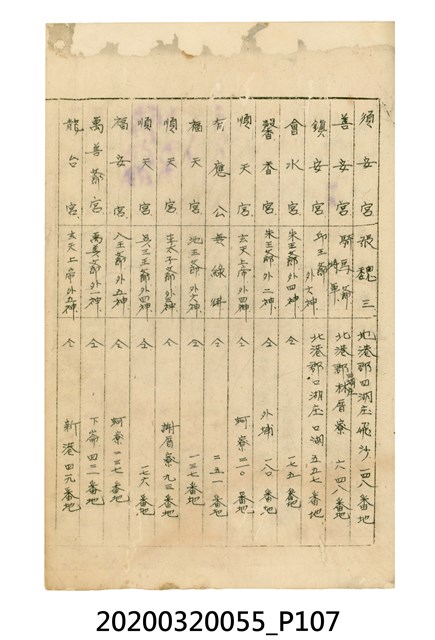 須安宮 張魏三 北港郡四湖庄飛沙一四八番地
善安宮 騎馬爺將軍 北港郡四湖庄林厝寮六四八番地
鎮安宮 邱王爺外七神 北港郡口湖庄口湖五五七番地
會水宮 朱王爺外四神 仝 一七五番地
馨香宮 朱王爺外二神 仝 外埔一八〇番地
順天宮 玄天上帝外四神 仝 蚵寮二一〇番地
有應公 無緣佛 仝 二五一番地
福天宮 池王爺外六神 仝 一三七番地
順天宮 李太子爺外多神 仝 謝厝寮九三番地
順天宮 吳三王爺外四神 仝 一七六番地
福安宮 八王爺外五神 仝 蚵寮二三七番地
萬善爺宮 萬善爺外一神 仝 下崙四三一番地
龍台宮 玄天上帝外五神 仝 新港四九番地
20200320055_P107